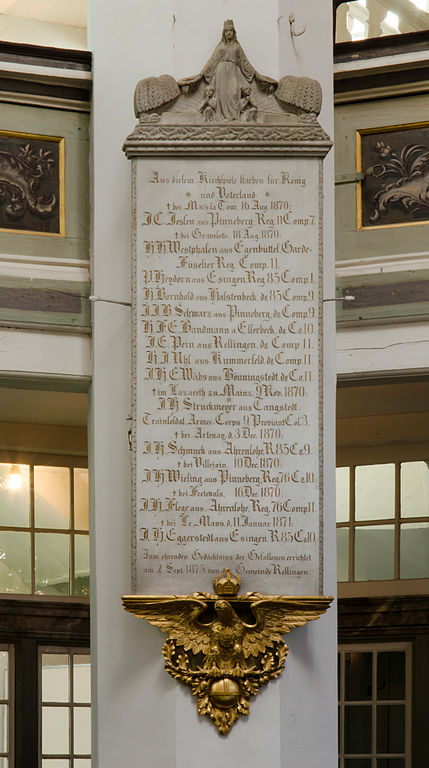 Aus diesem Kirchspiele starben für König
und Vaterland
† bei Mars la Tour, 16. Aug. 1870:
J.C. Jessen aus Pinneberg Reg. 11 Comp. 7.
† bei Gravelotte, 18. Aug. 1870:
H.H. Westphalen aus Egenbüttel Garde-
Füselier Reg. Comp. 11.
P. Heydorn aus Esingen Reg. 85 Comp. 1.
H. Bornhold aus Halstenbeck, de. 85 Comp. 9.
J.J.H. Schwarz aus Pinneberg, de Comp. 9.
H.F.E. Bandmann a. Ellerbeck, de. Co. 10.
J.E. Pein aus Rellingen, de Comp. 11.
H.J. Uhl aus Kummerfeld, de Comp. 11.
J.H.E. Wabs aus Bönningstedt, de Co. 11.
† im Lazareth zu Mainz, 9. Nov. 1870:
J.H. Struckmeyer aus Tangstedt.
Trainsoldat Armee Corps 9. Proviant Col. 3.
† bei Artenay, d. 3. Dec. 1870:
J.H. Schmuck aus Ahrenlohe, R. 85 Co. 9.
† bei Villejoin, 10. Dec. 1870:
J.H. Wieling aus Pinneberg Reg. 76 Co. 10.
† bei Freteval, 16. Dec. 1870:
J.H. Flege aus Ahrenlohe, Reg. 76 Comp. 11.
† bei Le Mans, d. 11. Januar 1871:
J.H. Eggerstedt aus Esingen R. 85 Co. 10.
Zum ehrenden Gedächtniss der Gefallenen errichtet
am 2. Sept. 1875 von der Gemeinde Rellingen.